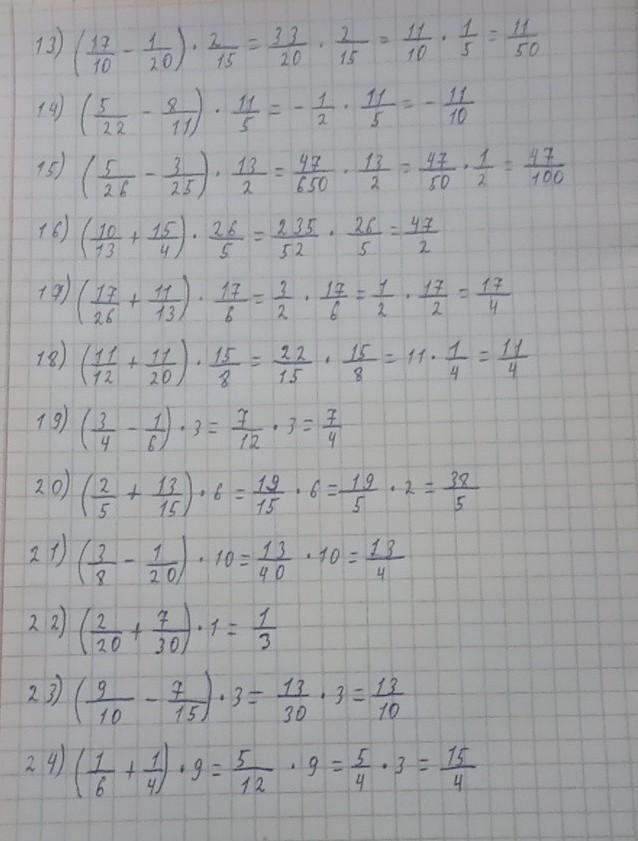 13) (17/10 - 1/20) · 2/15 = 33/20 · 2/15 = 11/10 · 1/5 = 11/50
14) (5/22 - 8/11) · 11/5 = - 1/2 · 11/5 = - 11/10
15) (5/26 - 3/25) · 13/2 = 47/650 · 13/2 = 47/50 · 1/2 = 47/100
16) (10/13 + 15/4) · 26/5 = 235/52 · 26/5 = 47/2
17) (17/26 + 11/13) · 17/6 = 3/2 · 17/6 = 1/2 · 17/2 = 17/4
18) (11/12 + 11/20) · 15/8 = 22/15 · 15/8 = 11 · 1/4 = 11/4
19) (3/4 - 1/6) · 3 = 7/12 · 3 = 7/4
20) (2/5 + 13/15) · 6 = 19/15 · 6 = 19/5 · 2 = 38/5
21) (3/8 - 1/20) · 10 = 13/40 · 10 = 13/4
22) (2/20 + 7/30) · 1 = 1/3
23) (9/10 - 7/15) · 3 = 13/30 · 3 = 13/10
24) (1/6 + 1/4) · 9 = 5/12 · 9 = 5/4 · 3 = 15/4